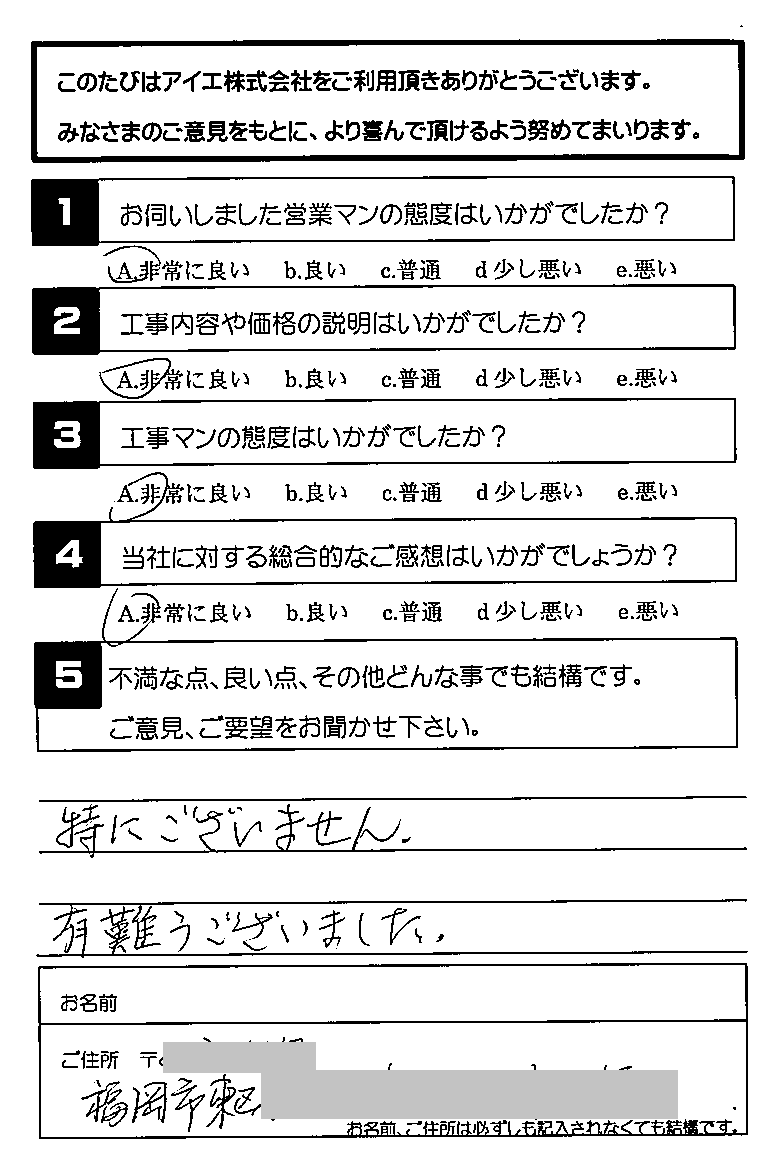 このたびはアイエ株式会社をご利用頂きありがとうございます。
みなさまのご意見をもとに、より喜んで頂けるよう努めてまいります。
1 お伺いしました営業マンの態度はいかがでしたか？
A.非常に良い b.良い c.普通 d少し悪い e.悪い
2 工事内容や価格の説明はいかがでしたか？
A.非常に良い b.良い c.普通 d少し悪い e.悪い
3 工事マンの態度はいかがでしたか？
A.非常に良い b.良い c.普通 d少し悪い e.悪い
4 当社に対する総合的なご感想はいかがでしょうか？
A.非常に良い b.良い c.普通 d少し悪い e.悪い
5 不満な点、良い点、その他どんな事でも結構です。
ご意見、ご要望をお聞かせ下さい。
特にございません.
有難うございました.
お名前
ご住所 〒
福岡市東区
お名前、ご住所は必ずしも記入されなくても結構です。